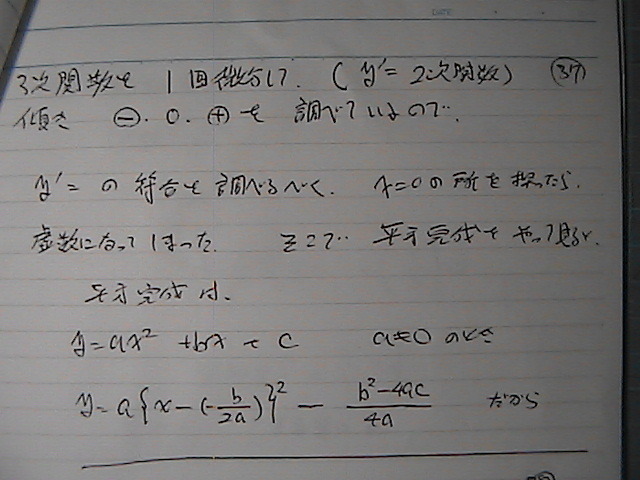 DATE
3次関数を 1回微分して. (y'= 2次関数) ㊲
傾き ⊖. 0. ⊕ を 調べているので.
y'= の 符合を調べるべく. x=0 の所を探ったら.
虚数になってしまった. そこで.. 平方完成をやって見ると.
平方完成は、
y=ax² +bx + c a≠0 のとき
y=a{x-(-b/2a)}² - (b²-4ac)/4a だから